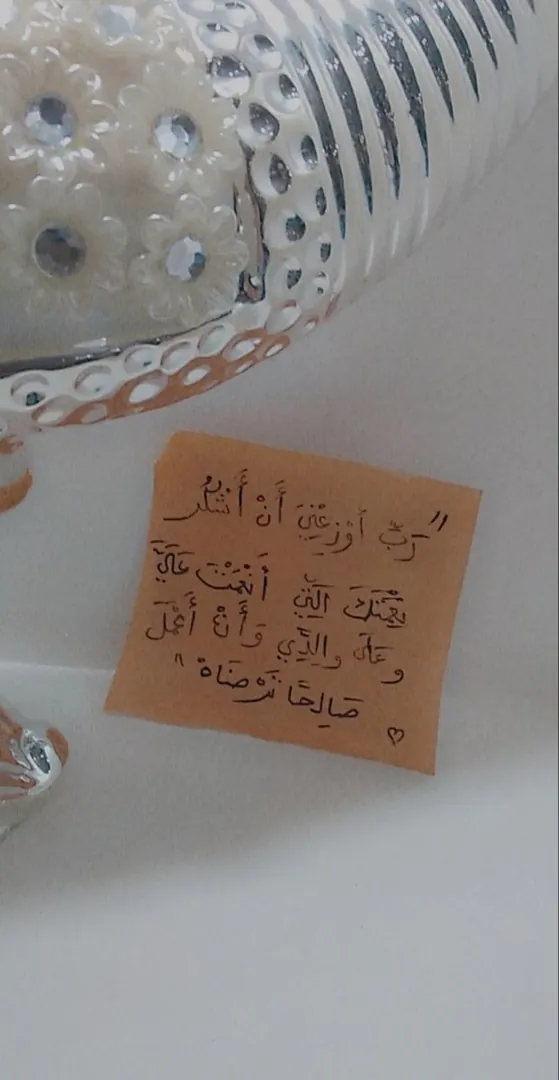 " رَبِّ أَوْزِعْنِي أَنْ أَشْكُرَ
نِعْمَتَكَ الَّتِي أَنْعَمْتَ عَلَيَّ
وَعَلَى وَالِدَيَّ وَأَنْ أَعْمَلَ
صَالِحًا تَرْضَاهُ "